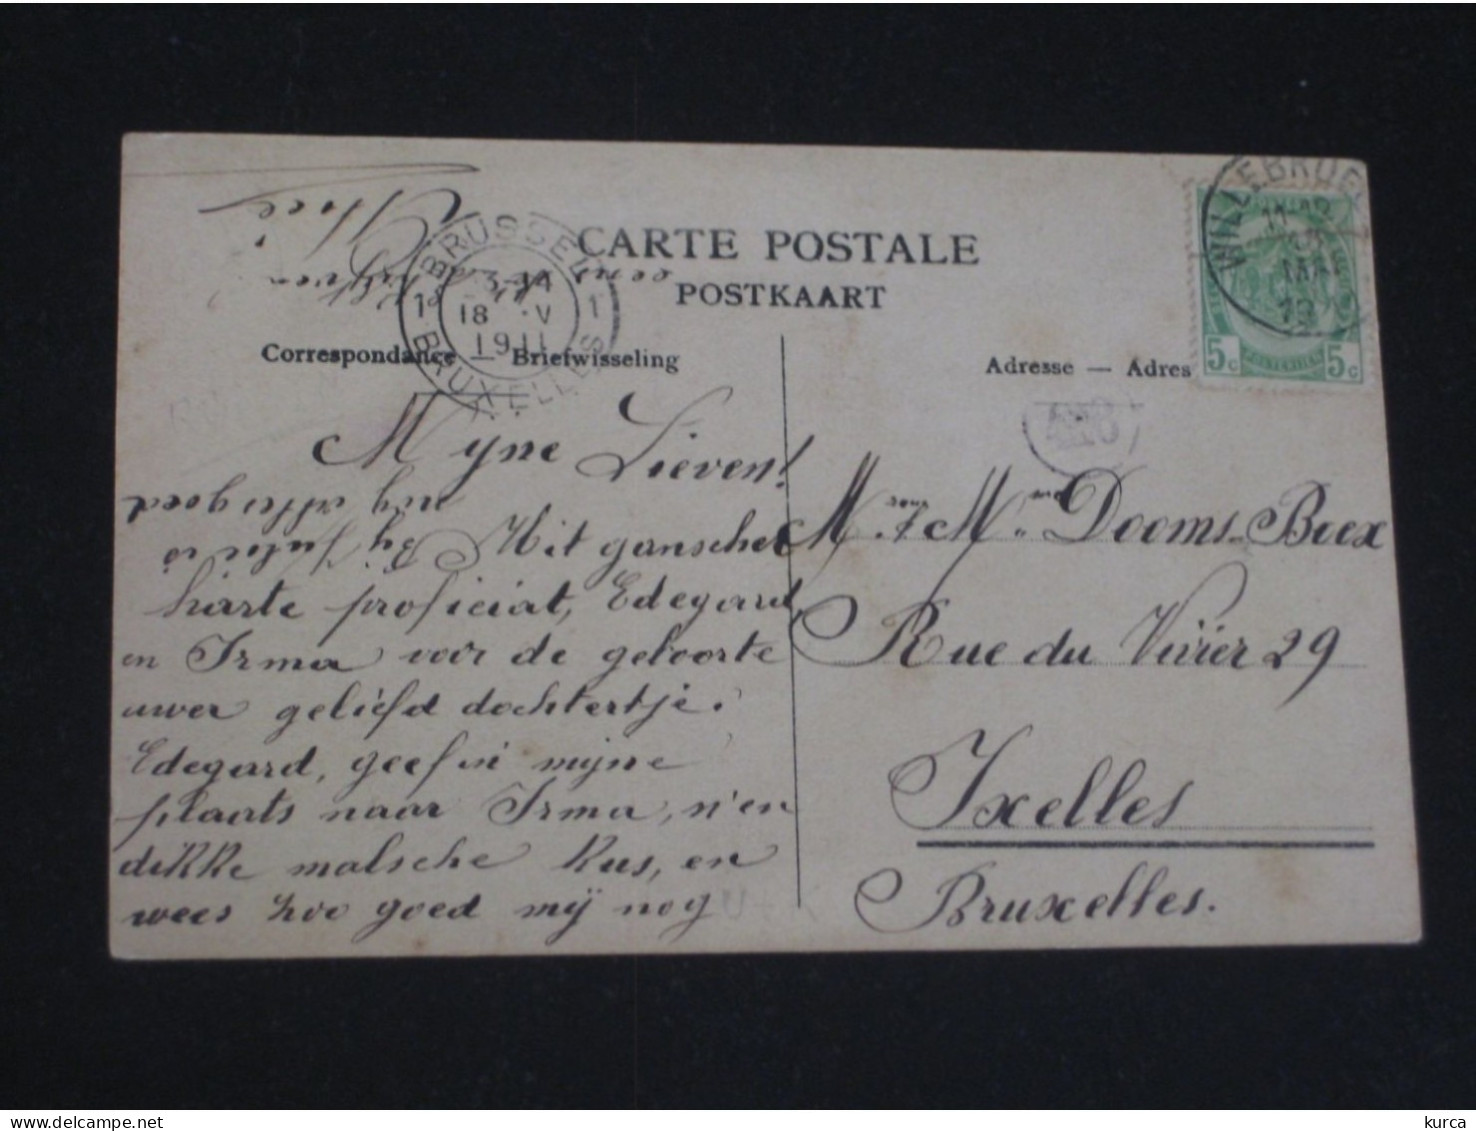 CARTE POSTALE
POSTKAART
Correspondance — Briefwisseling
Adresse — Adres
BRUSSEL
18 V
1911
BRUXELLES
1 1
WILLEBROE
MAE
5c 5c
Mijne Lieven!
Uit ganscher
harte proficiat, Edegard
en Irma voor de geboorte
uwer geliefd dochtertje.
Edegard, geef in mijne
plaats naar Irma, n'en
dikke malsche kus, en
wees hoo goed mij nog
eens
Bij Julie is
nog alles goed
Mr. & Mme Dooms-Boex
Rue du Vivier 29
Ixelles
Bruxelles.
kurca